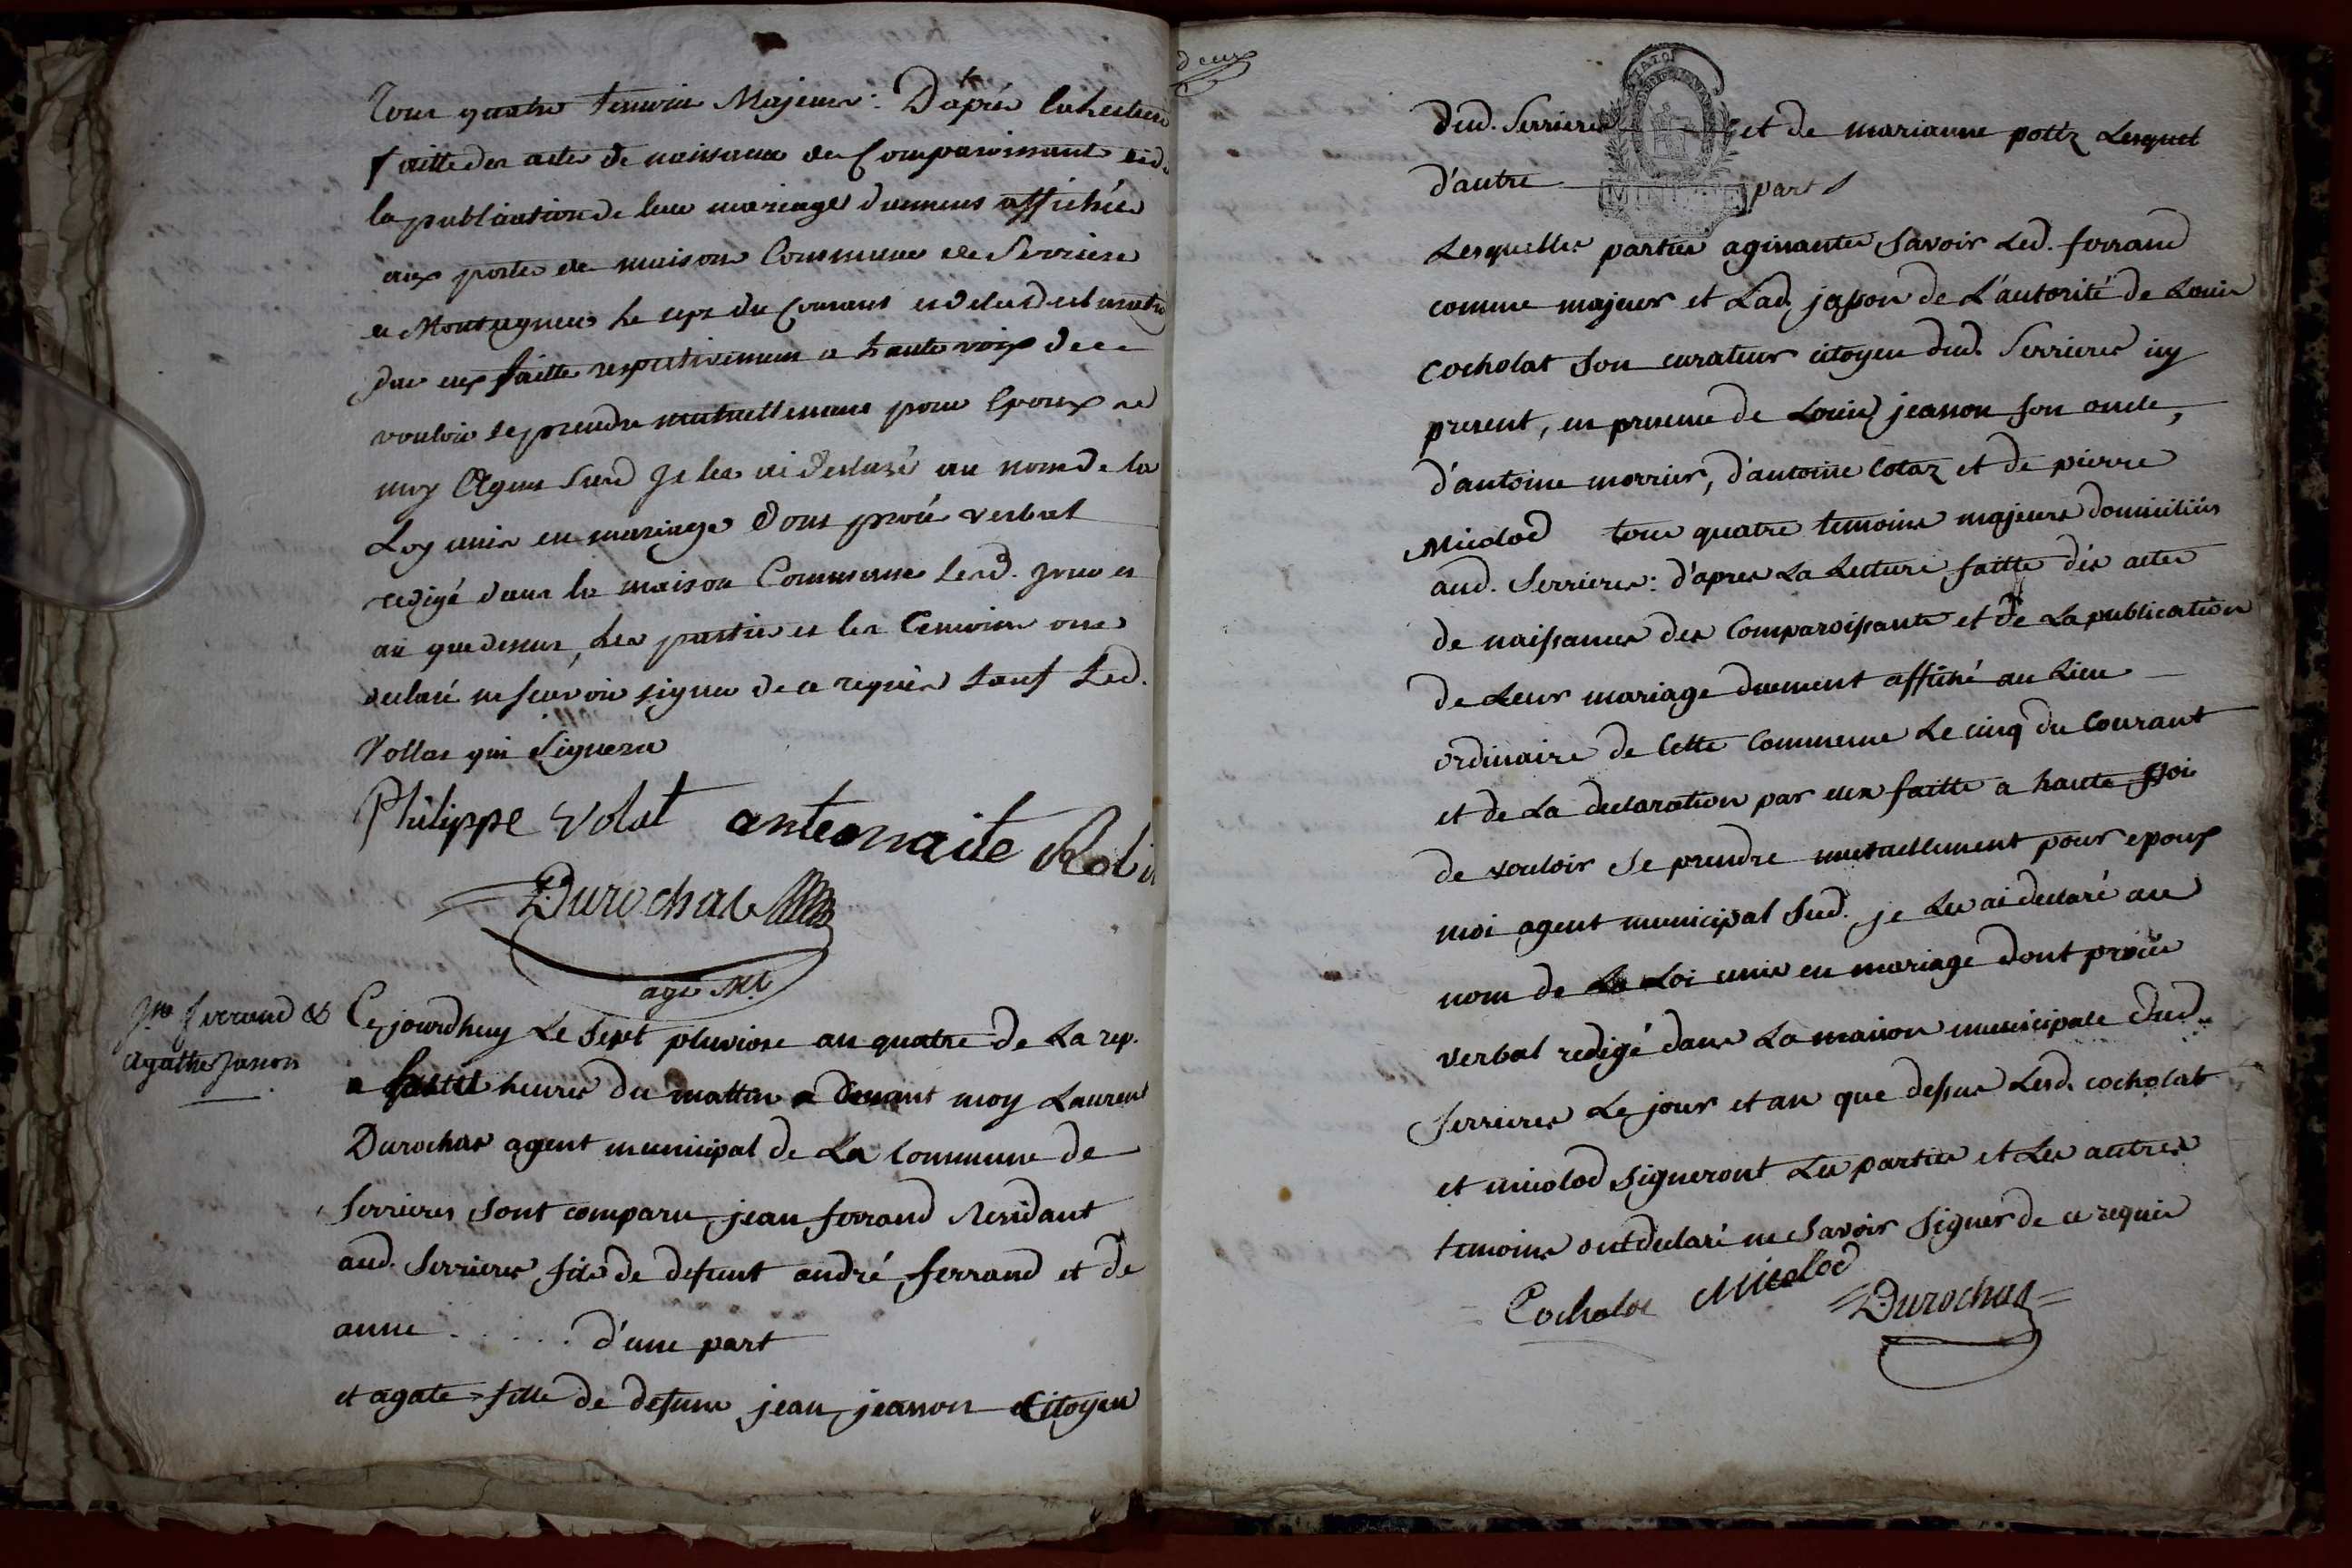 Tous quatre temoins Majeurs: D'après la lecture
faitte des actes de naissance des Comparoissants et de
la publication de leur mariage duement affichée
aux portes des maisons Communes de Serrières
et Montagnieu le sept du Courant et de la declaration
par eux faitte respectivement a haute voix de
vouloir se prendre mutuellement pour Epoux
moy Agent Susd je les ai declaré au nom de la
Loy unis en mariage dont procès verbal
redigé dans la maison Commune lesd. jour et
an que dessus, les parties et les temoins ont
declaré ne scavoir signer de ce requis sauf led.
Vollat qui signera
Philippe volat anteonaite Robi
Durochat
agt Ml
Jn ferrand &
agathe Janon
Cejourdhuy Le Sept pluviose an quatre de La rep.
a heures du mattin devant moy Laurent
Durochat agent municipal de La Commune de
Serrieres sont comparu jean ferrand Residant
aud. Serrieres fils de defunt andré ferrand et de
anne . . . . . d'une part
et agate fille de defunt jean jeanon Citoyen
deux
dud. Serrieres et de marianne pottz Lesquel
d'autre part
Lesquelles parties agissantes Savoir Led. ferrand
comme majeur et Lad. japon de L'autorité de Louis
Cocholat son curateur citoyen dud. Serrieres icy
present, en presence de Louis jeanon son oncle,
d'antoine morrier, d'antoine Cotaz et de pierre
Micolod tous quatre temoins majeurs domiciliés
aud. Serrieres: d'apres La Lecture faitte dès actes
de naissances des Comparoissants et de La publication
de Leur mariage duement affiché au Lieu
ordinaire de Cette Commune Le cinq du Courant
et de La declaration par eux faitte a haute voi
de vouloir Se prendre mutuellement pour epoux
moi agent municipal Sud. je Les ai declaré au
nom de La Loi unis en mariage dont procès
verbal redigé dans La maison municipale dud.
Serrieres Le jour et an que dessus Lesd. cocholat
et micolod signeront Les parties et Les autres
temoins ont declaré ne Savoir Signer de ce requis
Cocholat Micolod Durochat